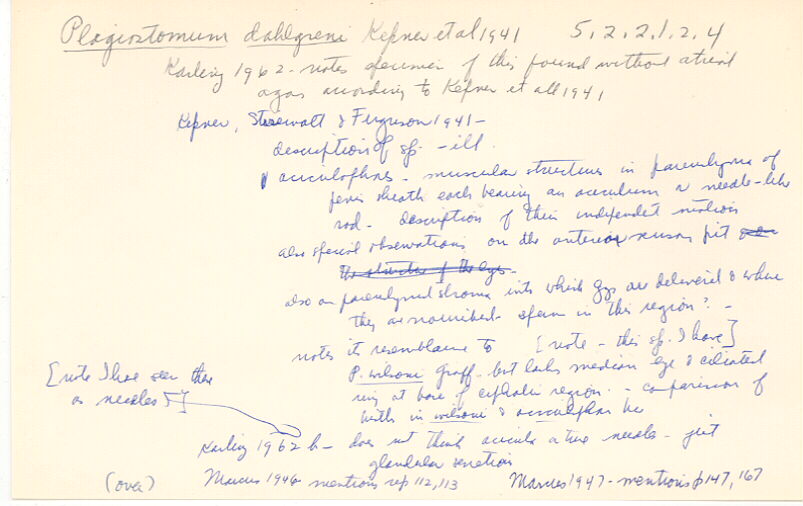 Plagiostomum dahlgreni Kepner et al 1941 5.2.2.1.2.4
Karling 1962 - notes specimen of this found without atrial
agas according to Kepner et all 1941
Kepner, Stirewalt & Ferguson 1941 -
description of sp. - ill.
aciculophors - muscular structures in parenchyma of
penis sheath each bearing an aciculum a needle-like
rod - description of their independet motion
also special observations on the anterior sensory pit
the structure of the eyes.
also on parenchymal stroma into which eggs are delivered & where
they are nourished - sperm in this region? -
notes its resemblance to [note - this sp. I have]
P. wilsoni Graff - but lacks median eye & ciliated
ring at base of cephalic region. - comparison of
in wilsoni &
[note I have seen these
as needles]
Karling 1962 b - does not think acicula a true needle - just
glandular secretion
(over) Marcus 1946 - mentions rep 112, 113 Marcus 1947 - mentions p 147, 167